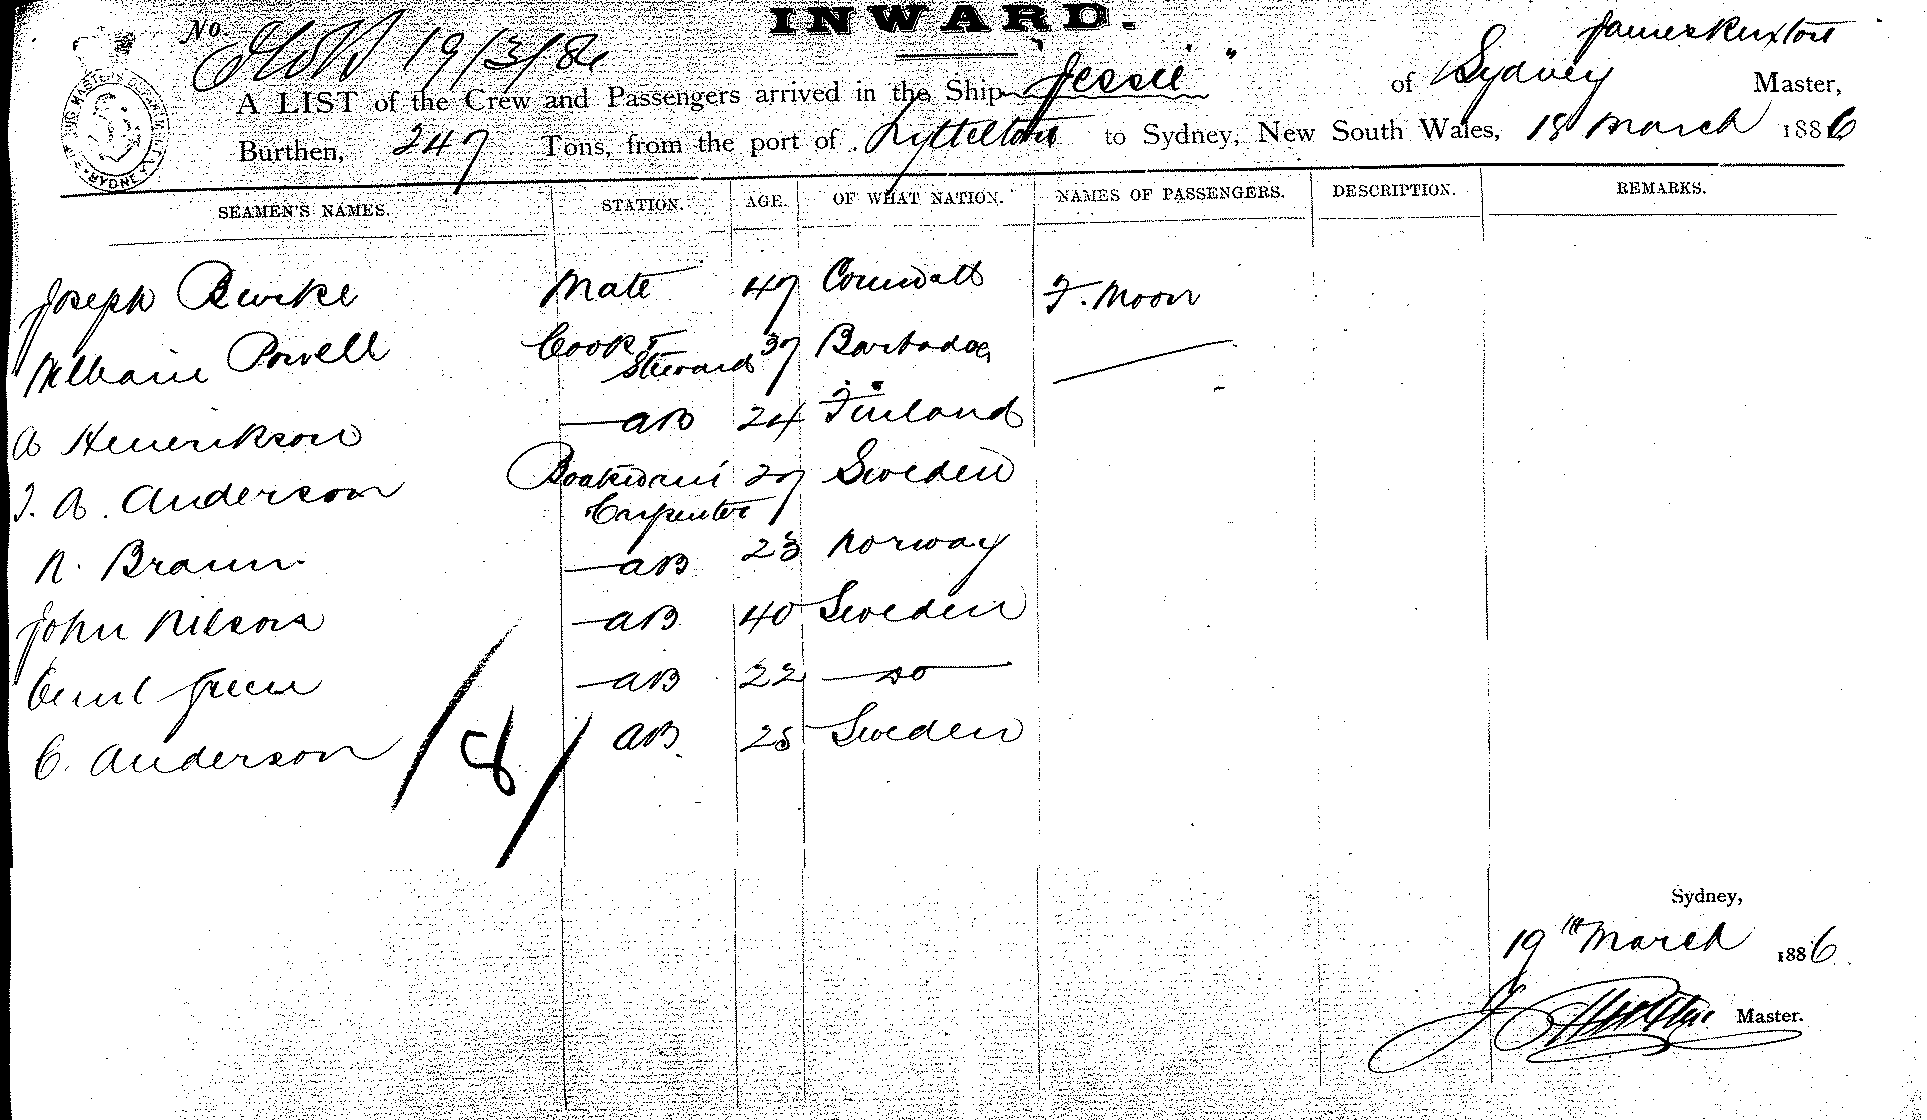 INWARD.
No.
19/3/86
James Ruxton
A LIST of the Crew and Passengers arrived in the Ship "Jessie" of Sydney Master,
Burthen, 247 Tons, from the port of Lyttelton to Sydney, New South Wales, 18 March 1886
SEAMEN'S NAMES. STATION. AGE. OF WHAT NATION. NAMES OF PASSENGERS. DESCRIPTION. REMARKS.
Joseph Burke Mate 47 Cornwall F. Moon
William Powell Cook & Steward 37 Barbadoes
A Henrikson AB 24 Finland
J. A. Anderson Boatswain Carpenter 27 Sweden
N. Braun AB 23 Norway
John Nilson AB 40 Sweden
Green AB 22 do
C. Anderson AB 25 Sweden
/8/
Sydney,
19th March 1886
Master.